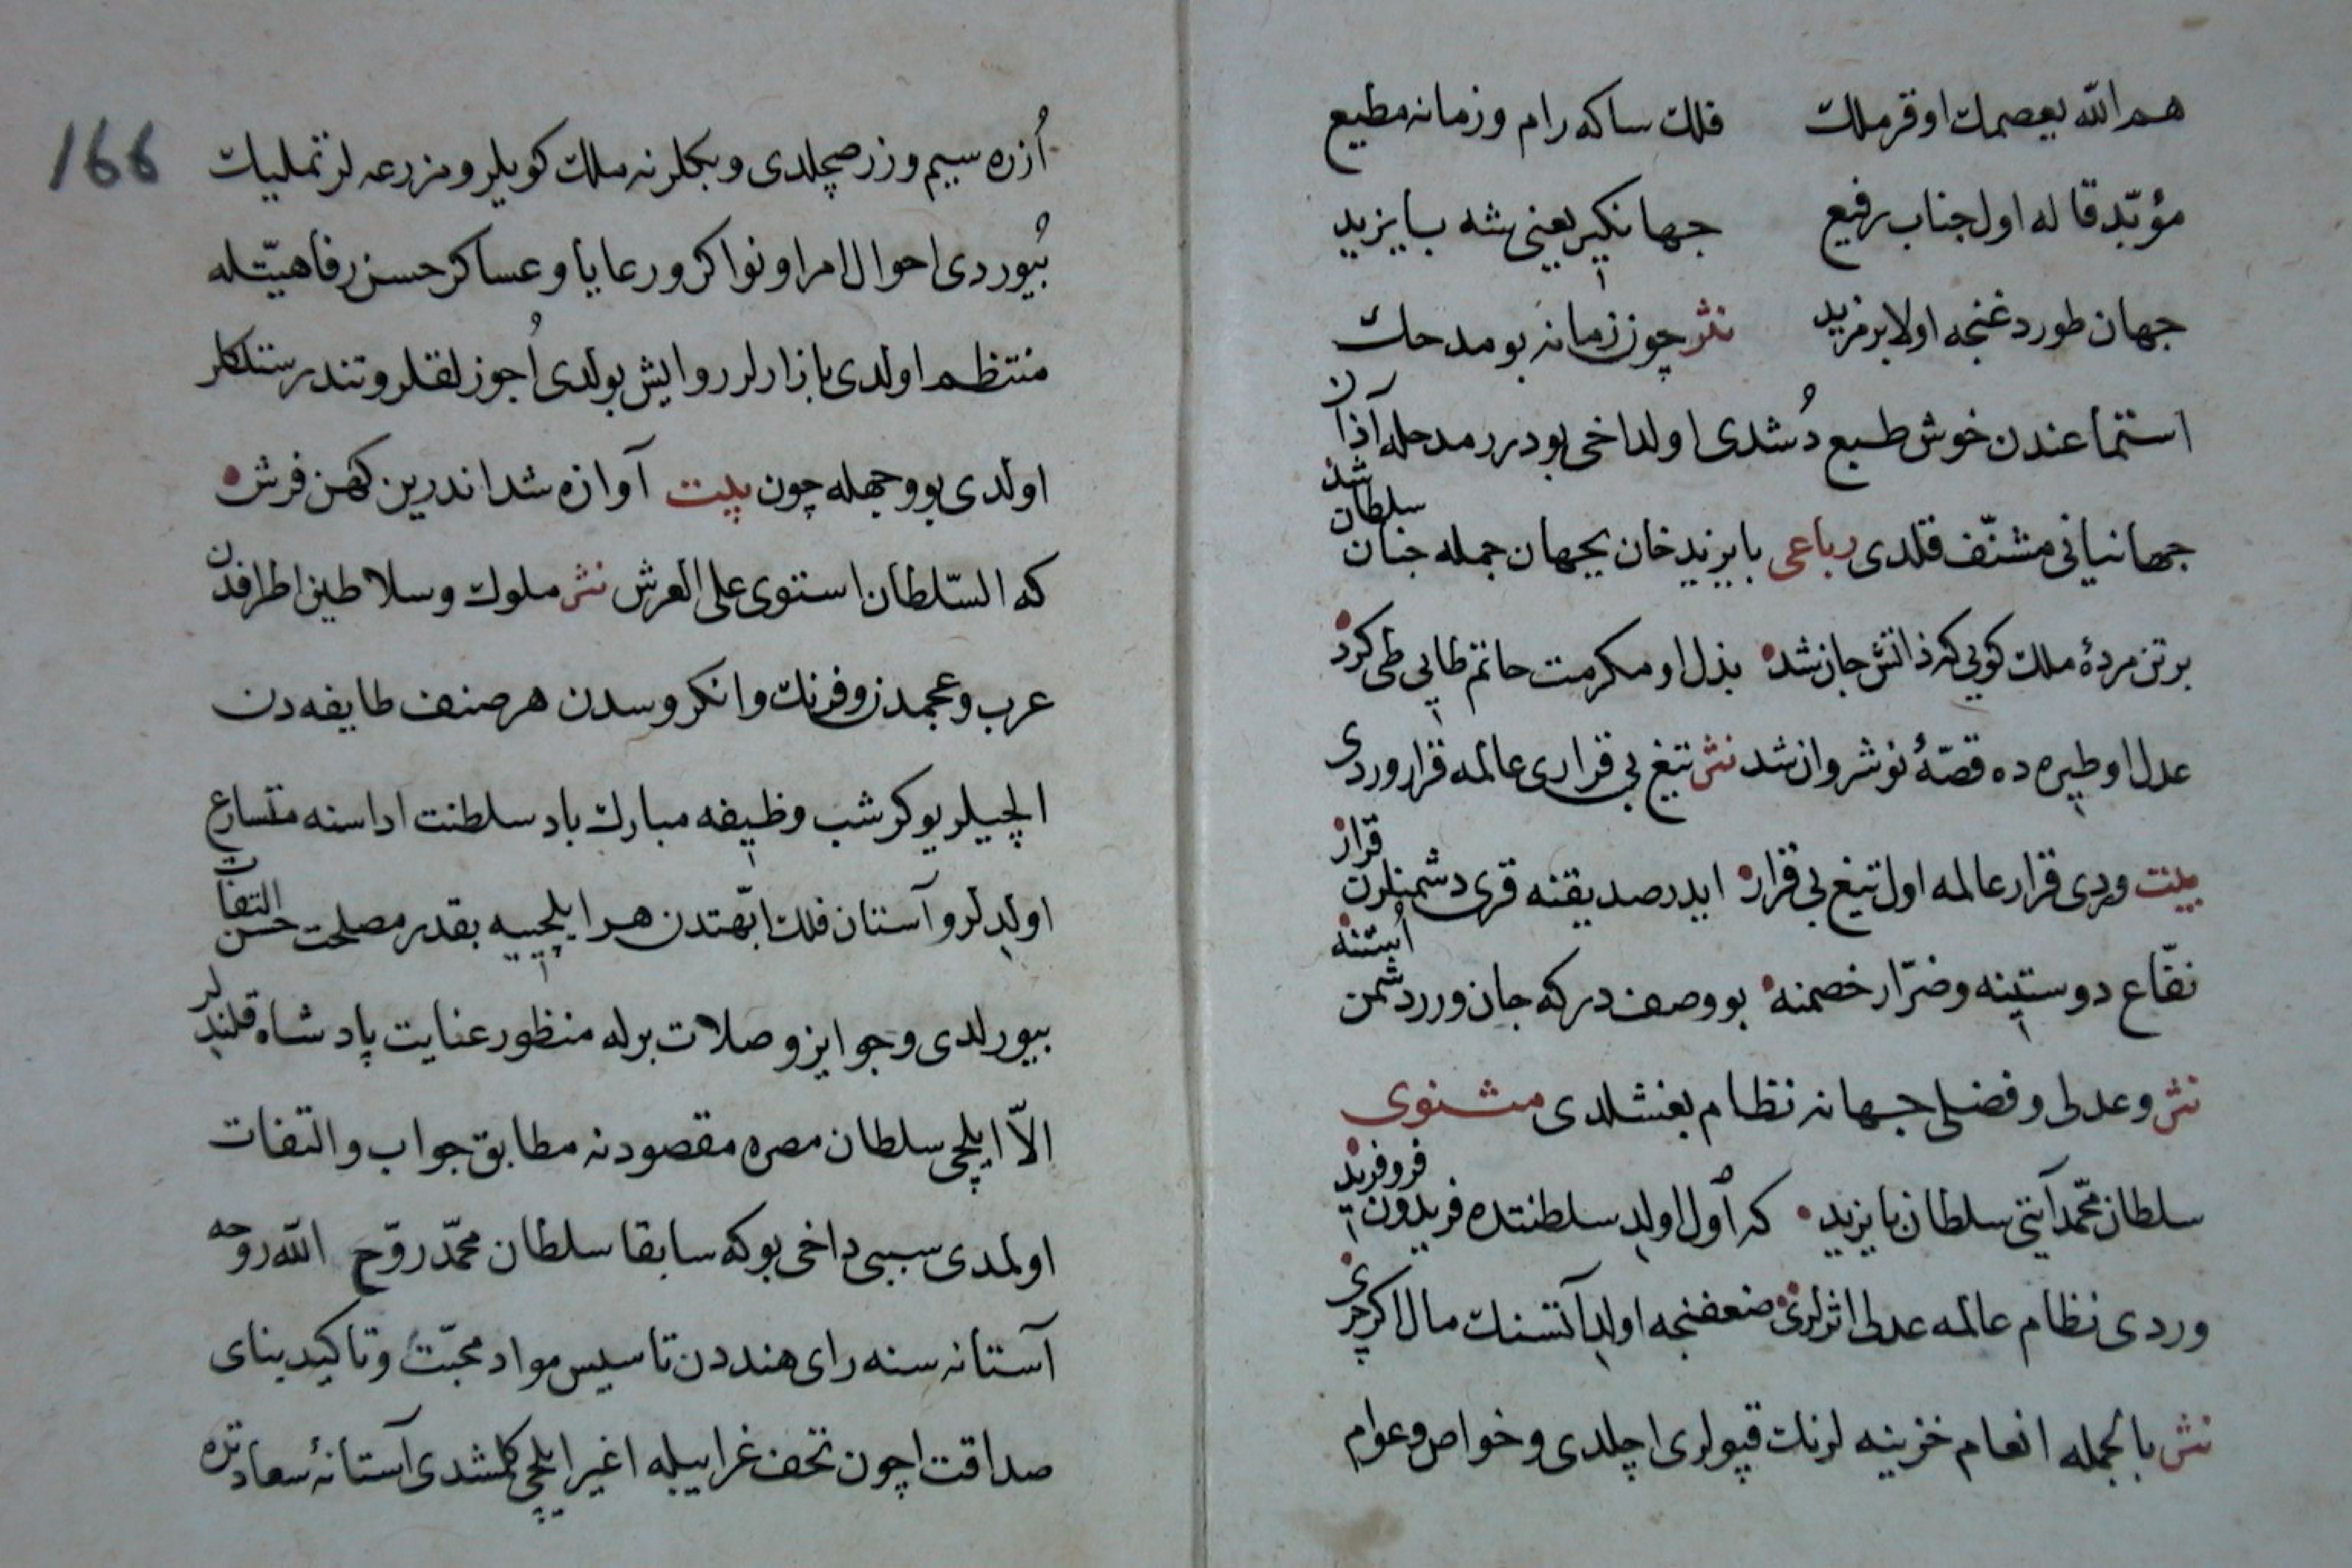 هم الله يعصمك اوقر ملك فلك ساكه رام و زمانه مطيع
مؤبّد قاله اول جناب رفيع جهانكير يعنى شه بايزيد
جهان طوردغنجه اولا بر مزيد نثر چون زمانه بو مدحك
استماعندن خوش طبع دُشدى اولداخى بو درر مدحله آذان
جهانيانى مشنّف قلدى رباعى بايزيد خان بجهان جمله جنان سلطان شد
برتن مردۀ ملك كويى كه ذاتش جان شد بذل او مكرمت حاتم طايى طى كرد
عدل او طيره ده قصّۀ نوشروان شد نثر تيغ بى قرارى عالمه قرار وردى
بيت وردى قرار عالمه اول تيغ بى قرار ايدر صديقنه قرى دشمنلرن قرار
نفّاع دوستينه و ضرّار خصمنه بو وصفدر كه جان ورر دشمن اُستنه
نثر و عدلى و فضلى جهانه نظام بغشلدى مثنوى
سلطان محمّد آيتى سلطان بايزيد كه اُول اولدى سلطنتده فريدون فر و فريد
وردى نظام عالمه عدلى اثرلرى ضعفنجه اولدى آتسنك مال اكرچرى
نثر بالجمله انعام خزينه لرنك قپولرى اچلدى و خواص و عوام
166
اُزره سيم و زر صچلدى و بكلرنه ملك كويلر و مزرعه لر تمليك
بُيوردى احوال امرا و نواكر و رعايا و عساكر حسن رفاهيّتله
منتظم اولدى بازارلر روايش بولدى اُجوزلقلر و تندرستلكلر
اولدى بو وجهله چون بيت آوازه شد اندرين كهن فرش
كه السّلطان استوى على العرش نثر ملوك و سلاطين اطرافدن
عرب و عجمدن و فرنك و انكروسدن هر صنف طايفه دن
الچيلر يوكرشب وظيفه مبارك باد سلطنت اداسنه متسارع
اولدلر و آستان فلك ابّهتدن هر ايلچييه بقدر مصلحت حسن التفات
بيورلدى و جوايز و صلات برله منظور عنايت پادشاه قلندلر
الاّ ايلچى سلطان مصره مقصودنه مطابق جواب و التفات
اولمدى سببى داخى بو كه سابقا سلطان محمّد روّح الله روحه
آستانه سنه راى هنددن تاسيس مواد محبّت و تاكيد بناى
صداقت اچون تحف غراييله اغير ايلچى كلمشدى آستانۀ سعادتده